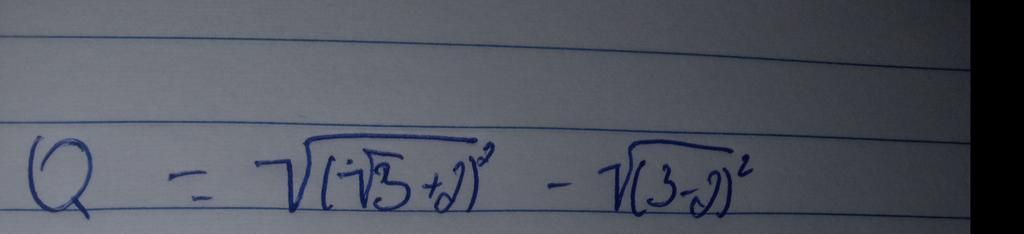 Q = √(-√3+2)² - √(3-2)²